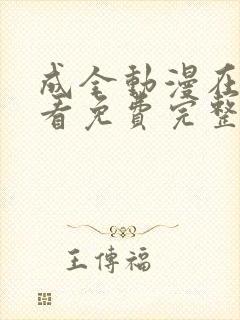 成全動漫在
看免費完整
王傳福